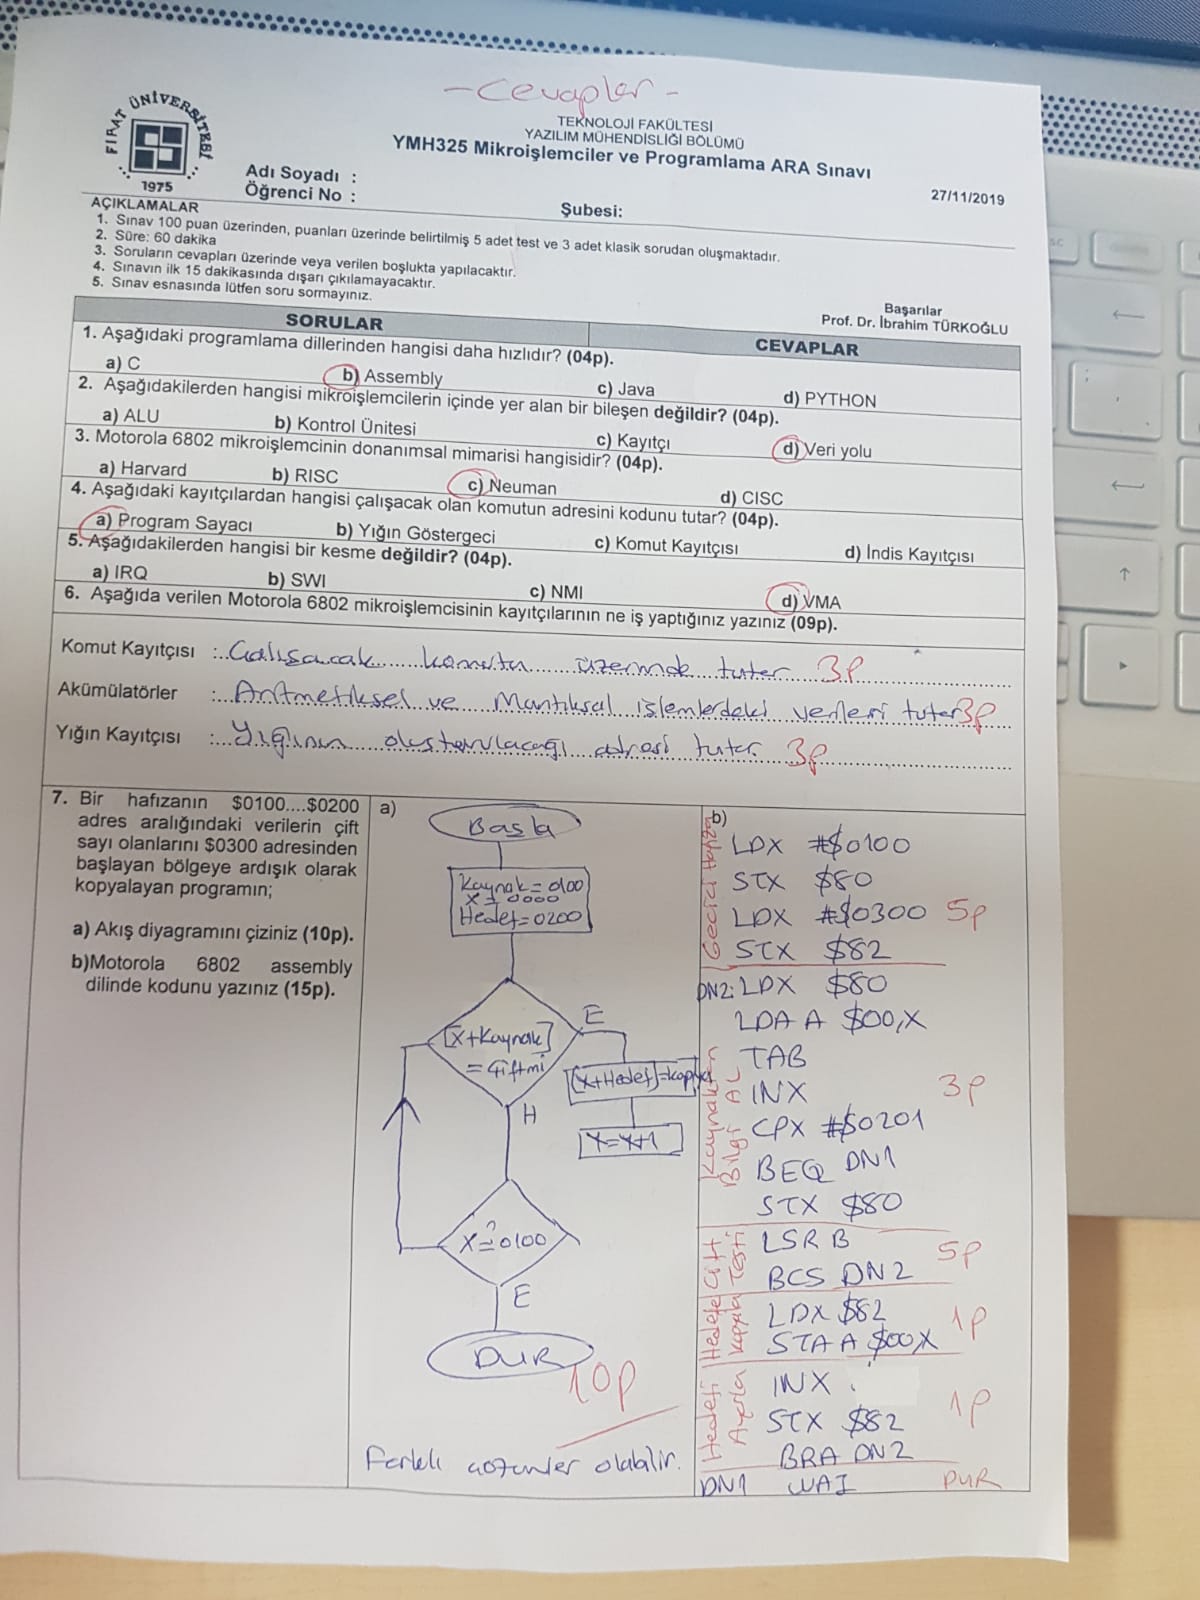 -Cevaplar-
FIRAT ÜNİVERSİTESİ
1975
TEKNOLOJİ FAKÜLTESİ
YAZILIM MÜHENDİSLİĞİ BÖLÜMÜ
YMH325 Mikroişlemciler ve Programlama ARA Sınavı
27/11/2019
Adı Soyadı :
Öğrenci No :
Şubesi:
AÇIKLAMALAR
1. Sınav 100 puan üzerinden, puanları üzerinde belirtilmiş 5 adet test ve 3 adet klasik sorudan oluşmaktadır.
2. Süre: 60 dakika
3. Soruların cevapları üzerinde veya verilen boşlukta yapılacaktır.
4. Sınavın ilk 15 dakikasında dışarı çıkılamayacaktır.
5. Sınav esnasında lütfen soru sormayınız.
Başarılar
Prof. Dr. İbrahim TÜRKOĞLU
SORULAR
CEVAPLAR
1. Aşağıdaki programlama dillerinden hangisi daha hızlıdır? (04p).
a) C b) Assembly c) Java d) PYTHON
2. Aşağıdakilerden hangisi mikroişlemcilerin içinde yer alan bir bileşen değildir? (04p).
a) ALU b) Kontrol Ünitesi c) Kayıtçı d) Veri yolu
3. Motorola 6802 mikroişlemcinin donanımsal mimarisi hangisidir? (04p).
a) Harvard b) RISC c) Neuman d) CISC
4. Aşağıdaki kayıtçılardan hangisi çalışacak olan komutun adresini kodunu tutar? (04p).
a) Program Sayacı b) Yığın Göstergeci c) Komut Kayıtçısı d) İndis Kayıtçısı
5. Aşağıdakilerden hangisi bir kesme değildir? (04p).
a) IRQ b) SWI c) NMI d) VMA
6. Aşağıda verilen Motorola 6802 mikroişlemcisinin kayıtçılarının ne iş yaptığınız yazınız (09p).
Komut Kayıtçısı : Çalışacak komutu üzerinde tutar 3p
Akümülatörler : Aritmetiksel ve Mantıksal işlemlerdeki verileri tutar 3p
Yığın Kayıtçısı : Yığının oluşturulacağı adresi tutar. 3p
7. Bir hafızanın $0100....$0200
adres aralığındaki verilerin çift
sayı olanlarını $0300 adresinden
başlayan bölgeye ardışık olarak
kopyalayan programın;
a) Akış diyagramını çiziniz (10p).
b)Motorola 6802 assembly
dilinde kodunu yazınız (15p).
a)
Başla
Kaynak=0100
X=0000
Hedef=0200
[X+Kaynak]
=Çiftmi
E
[X+Hedef]=kopyala
X=X+1
H
X=?0100
E
DUR
10p
Farklı çözümler olabilir.
b)
Geçici Hafıza
LDX #$0100
STX $80
LDX #$0300 5p
STX $82
DN2: LDX $80
LDA A $00,X
Kaynaktan
Bilgi AL
TAB
INX 3p
CPX #$0201
BEQ DN1
STX $80
Çift
Testi
LSR B 5p
BCS DN2
Hedefe
Kopyala
LDX $82 1p
STA A $00X
Hedefi
Ayarla
INX
STX $82 1p
BRA DN2
DN1 WAI DUR